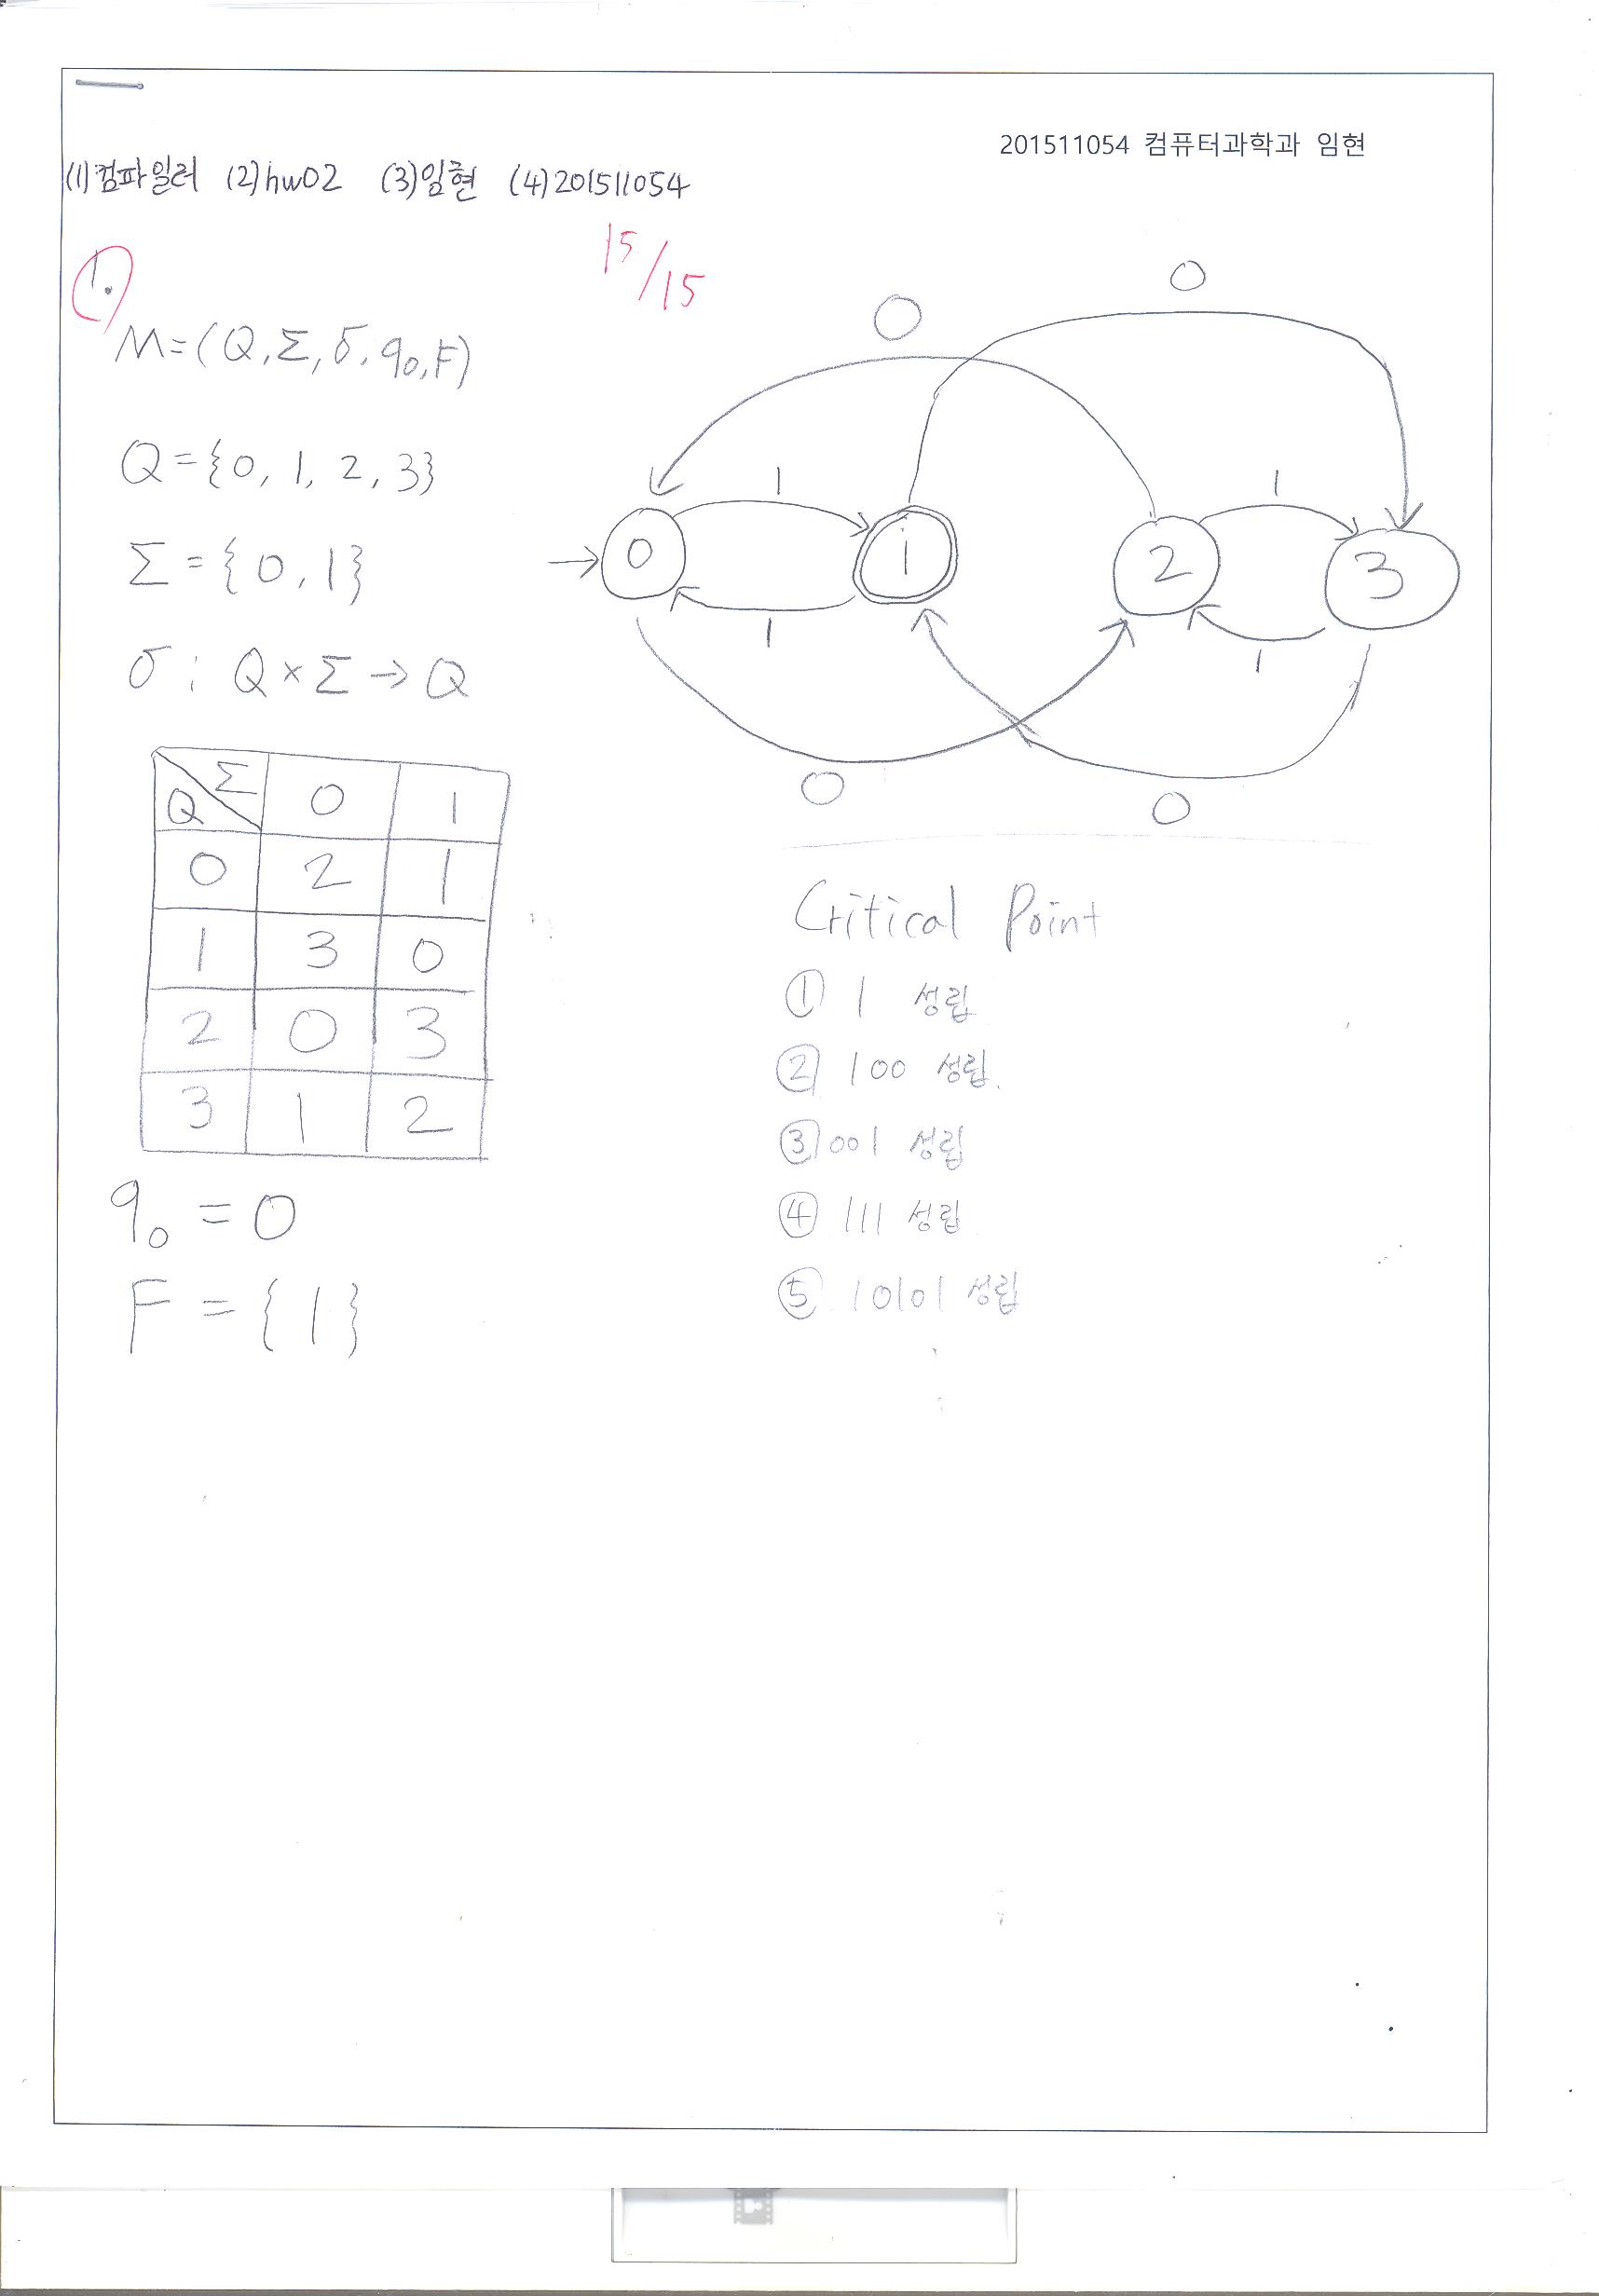 201511054 컴퓨터과학과 임현
(1)컴파일러 (2)hw02 (3)임현 (4)201511054
15/15
1.
M=(Q,Σ,δ,q0,F)
Q={0, 1, 2, 3}
Σ={0,1}
δ: Q×Σ→Q
Q Σ 0 1
0 2 1
1 3 0
2 0 3
3 1 2
q0=0
F={1}
0 0
1 1
0 1 2 3
1 1
0 0
Critical Point
① 1 성립
② 100 성립.
③ 001 성립
④ 111 성립
⑤ 10101 성립